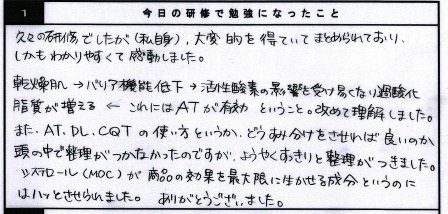 1 今日の研修で勉強になったこと
久々の研修でしたが(私自身)、大変 的を得ていてまとめられており、
しかもわかりやすくて感動しました。
乾燥肌→バリア機能低下→活性酸素の影響を受け易くなり過酸化
脂質が増える ← これにはATが有効 ということ。改めて理解しました。
また、AT、DL、CQTの使い方というか、どうより分けをさせれば良いのか
頭の中で整理がつかなかったのですが、ようやくすっきりと整理がつきました。
ソステロール(MDC)が商品の効果を最大限に生かせる成分というのに
はハッとさせられました。 ありがとうございました。